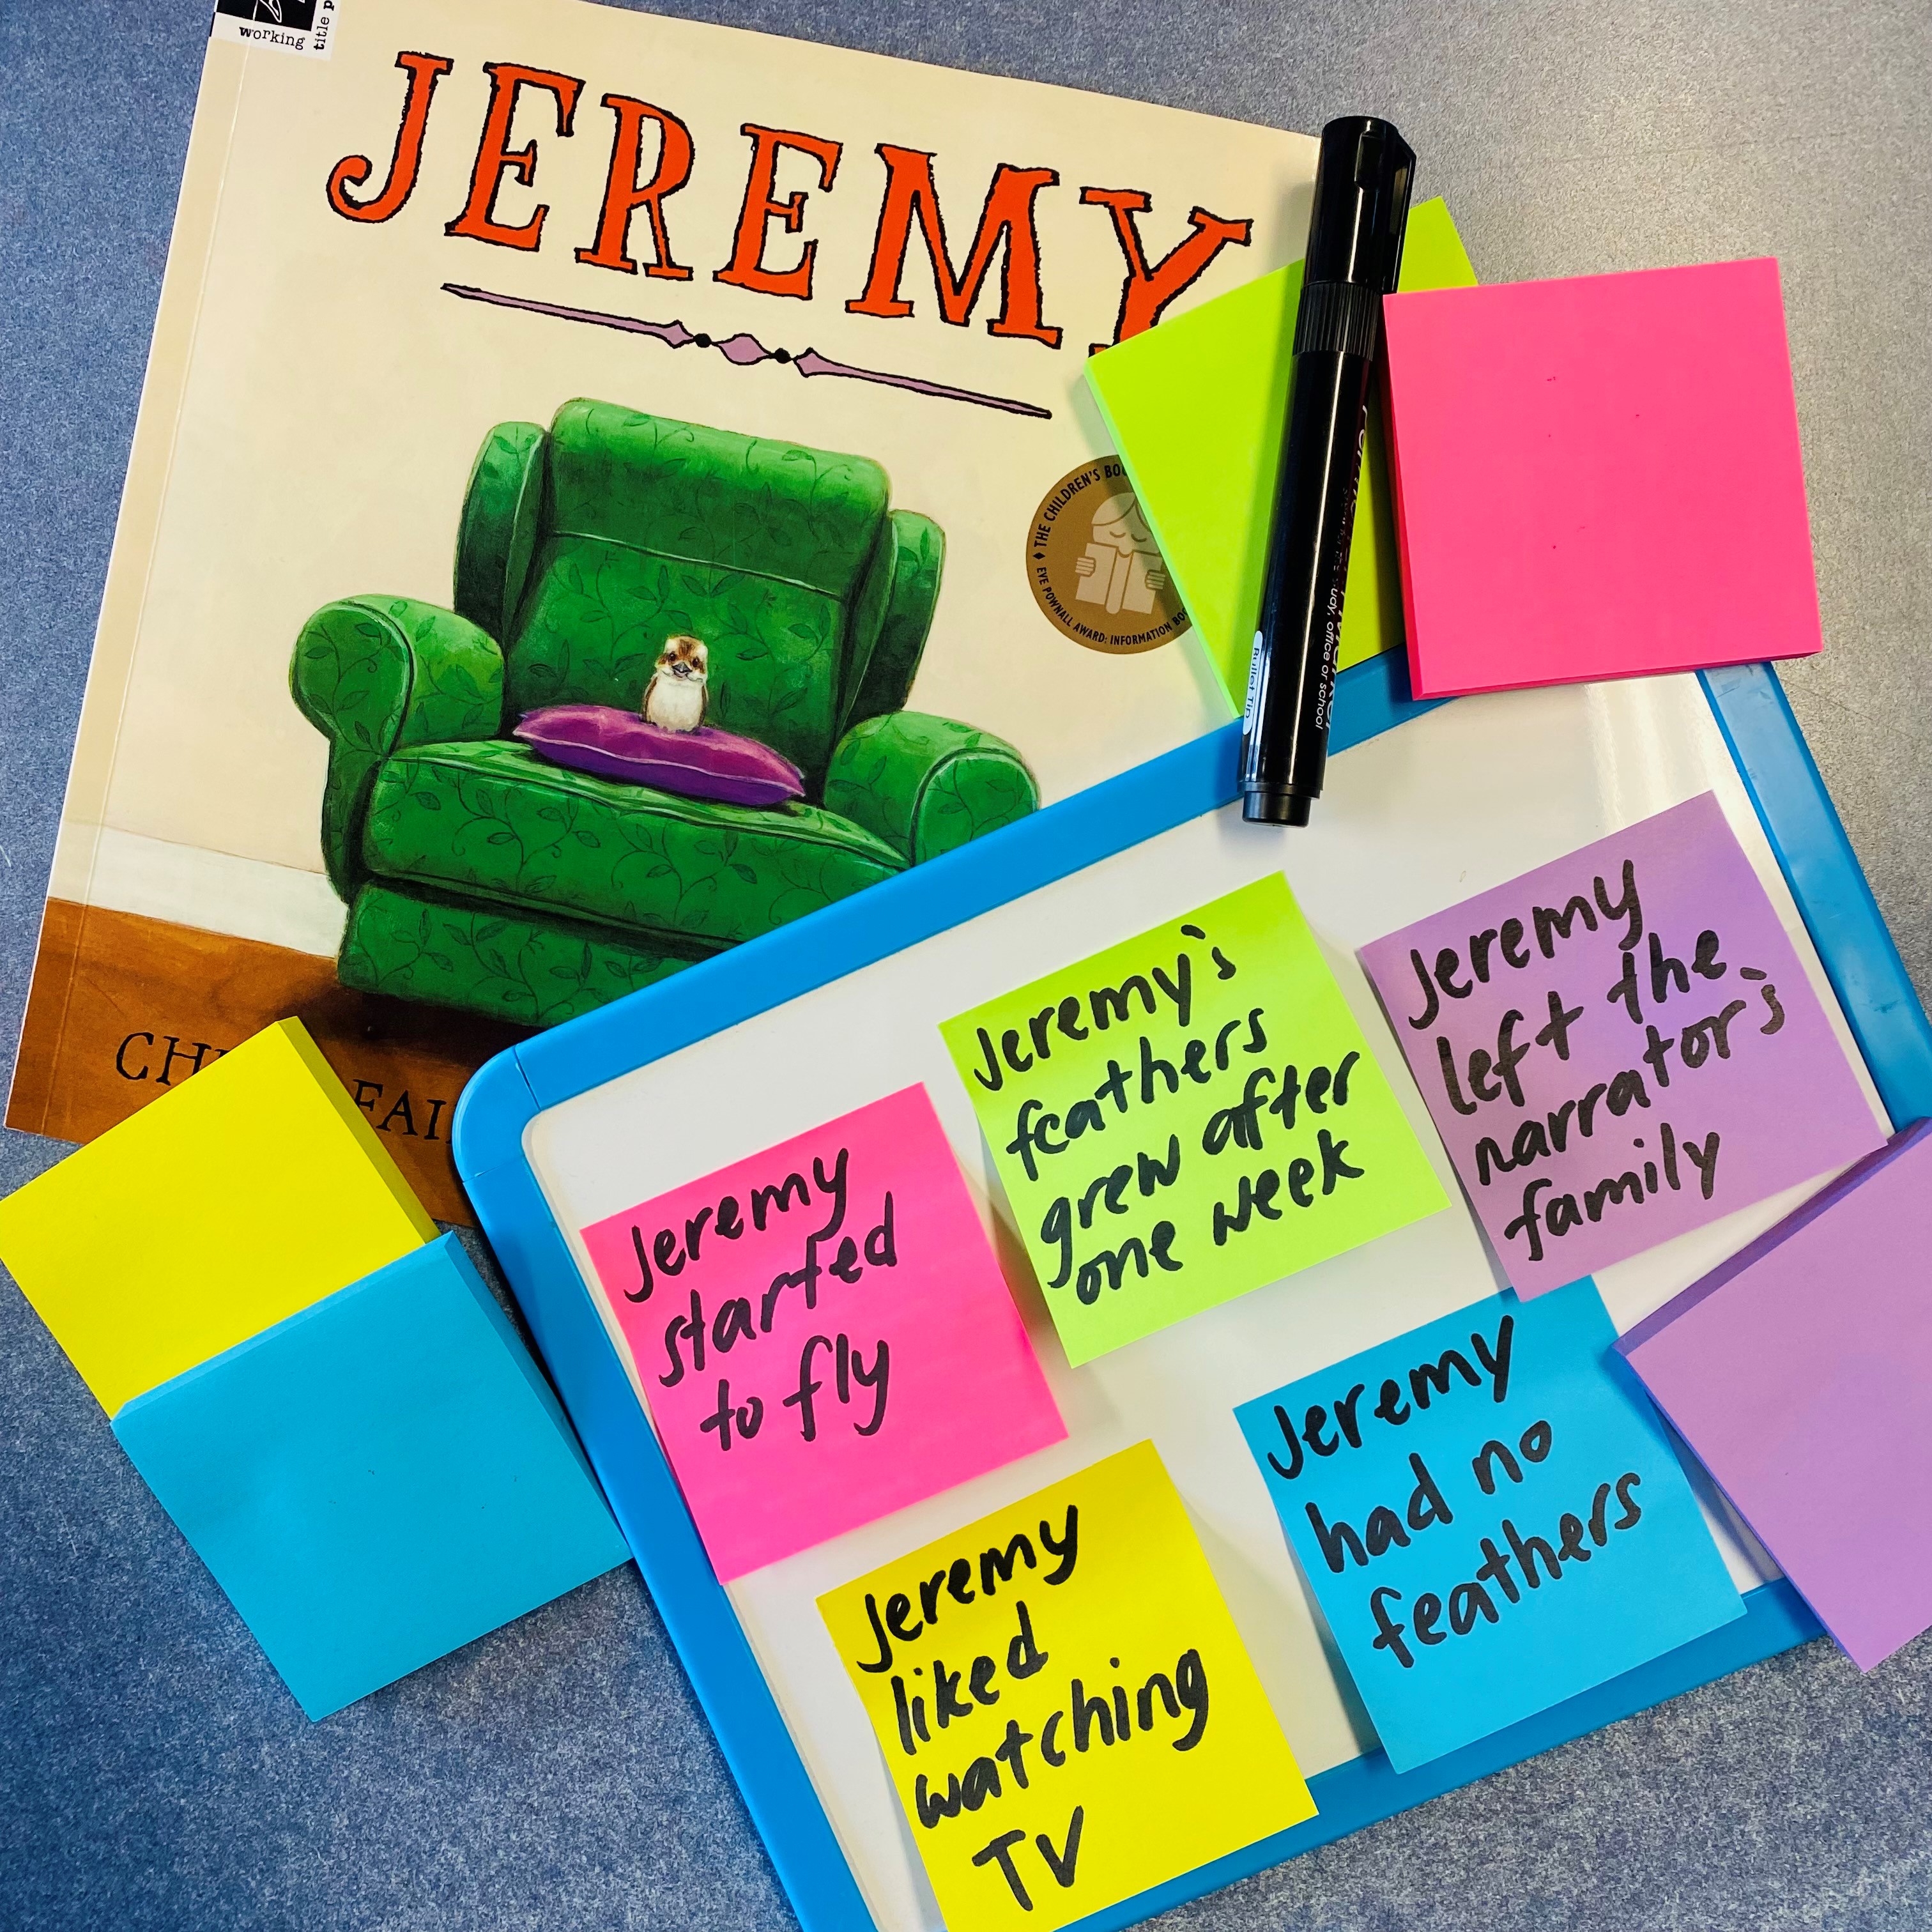 working
title p
JEREMY
THE CHILDREN'S
EVE POWNALL AWARD: INFORMATION
Bullet Tip
office or school
FAI
Jeremy's
feathers
grew after
one week
Jeremy
left the
narrator's
family
Jeremy
started
to fly
Jeremy
had no
feathers
Jeremy
liked
watching
TV